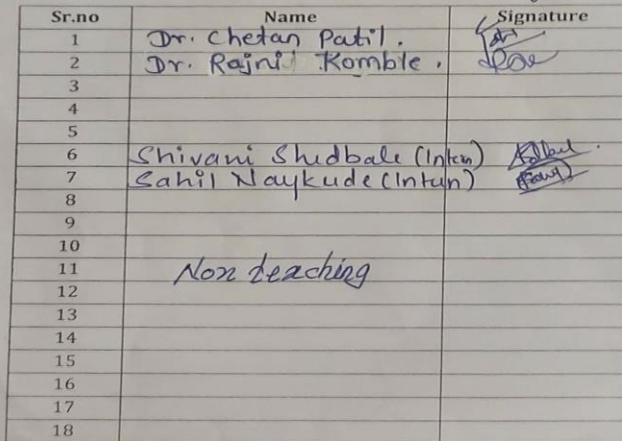 Sr.no Name Signature
1 Dr. Chetan Patil.
2 Dr. Rajni Komble.
3
4
5
6 Shivani Shedbale (Intern)
7 Sahil Naykude (Intern)
8
9
10
11 Non teaching
12
13
14
15
16
17
18